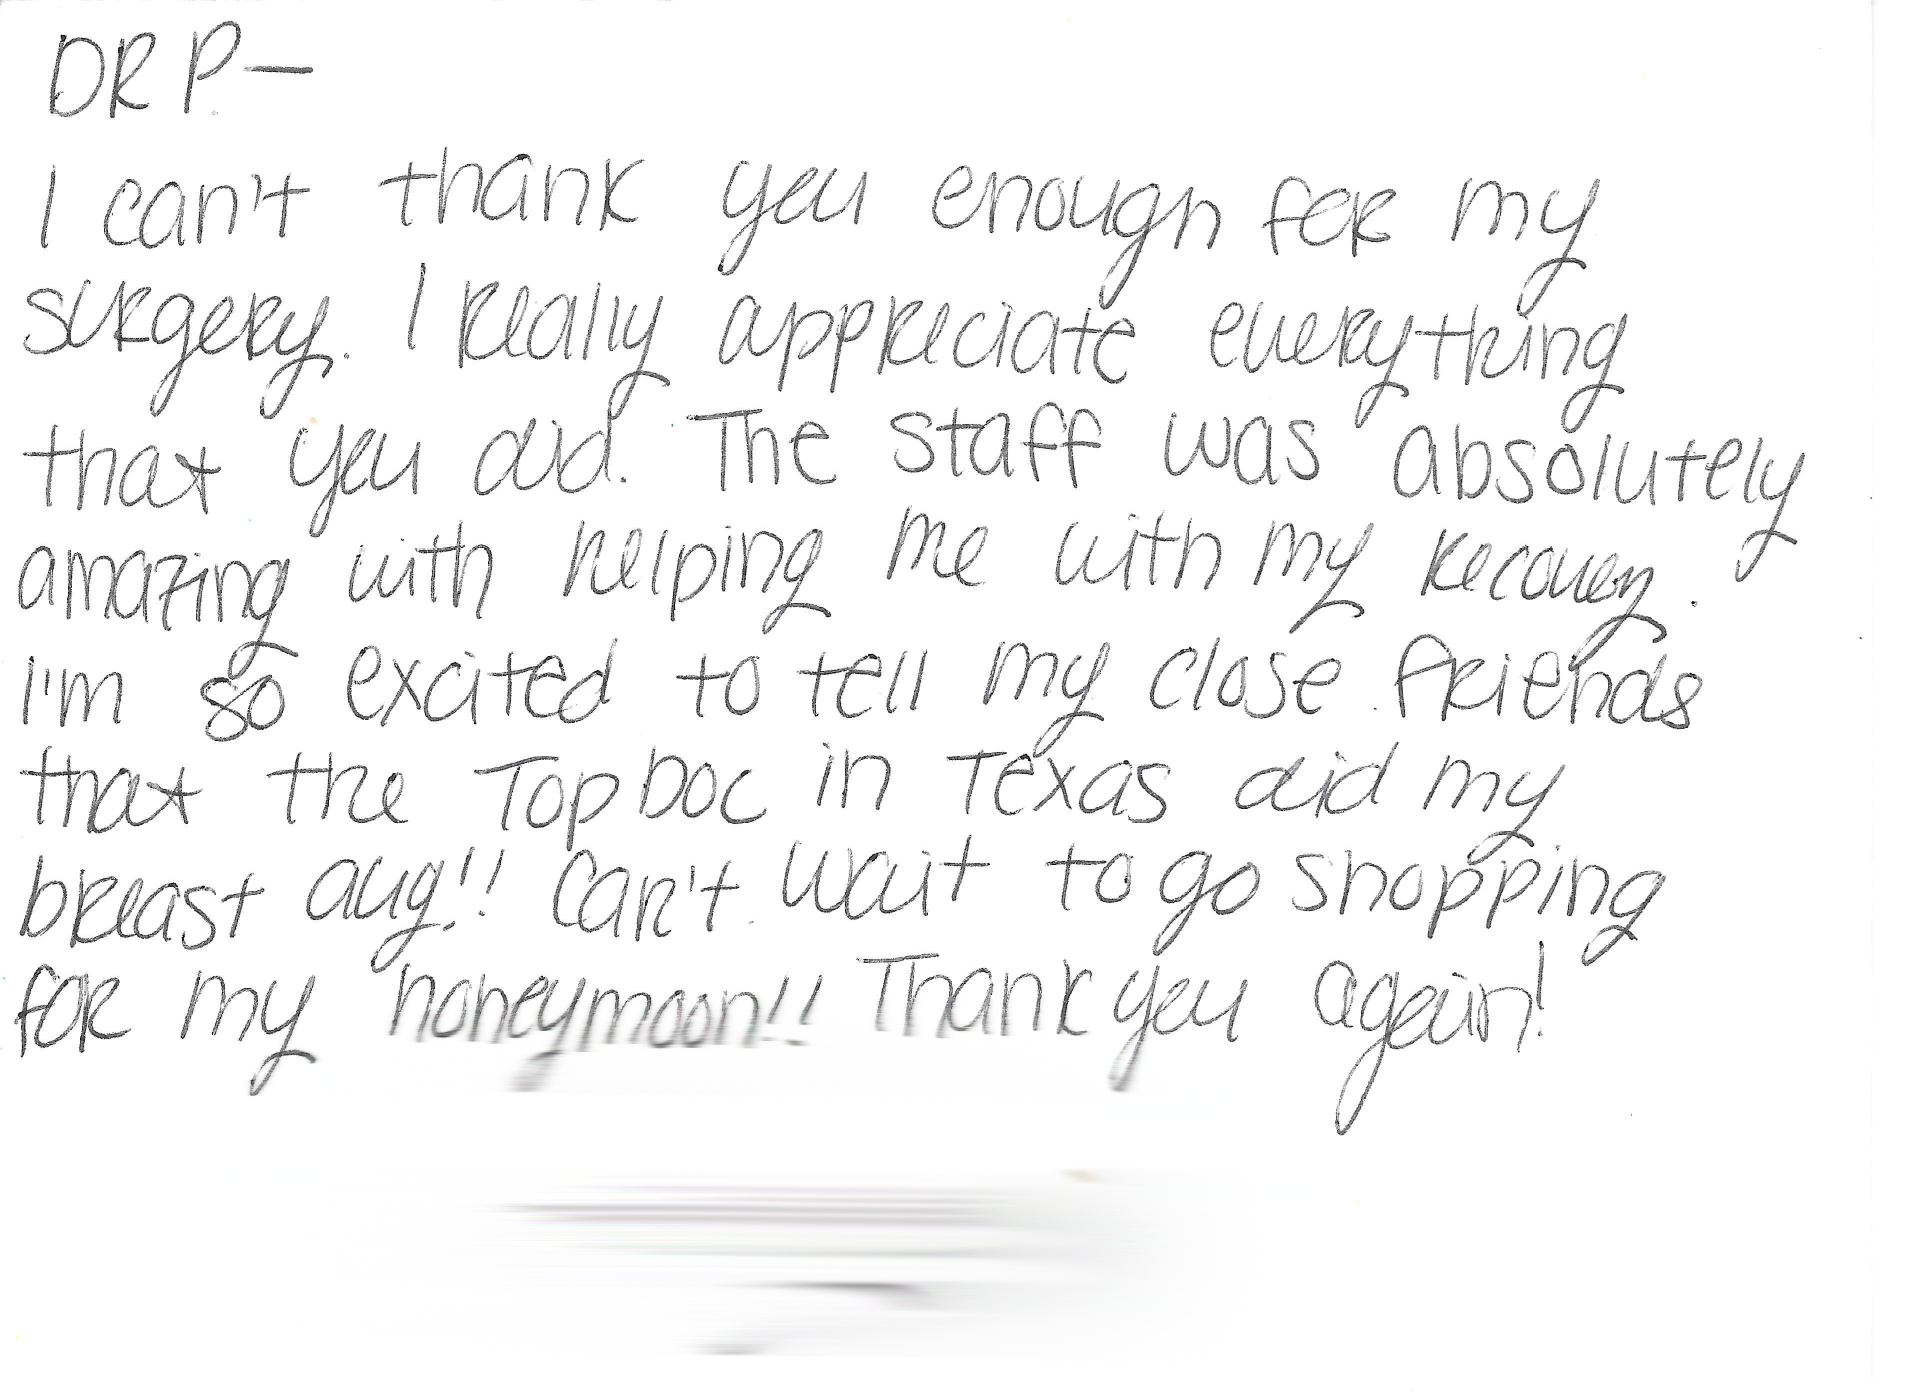 DR P—
I can't thank you enough for my
surgery. I really appreciate everything
that you did. The staff was absolutely
amazing with helping me with my recovery.
I'm so excited to tell my close friends
that the Top Doc in Texas did my
breast aug!! Can't wait to go shopping
for my honeymoon!! Thank you again!